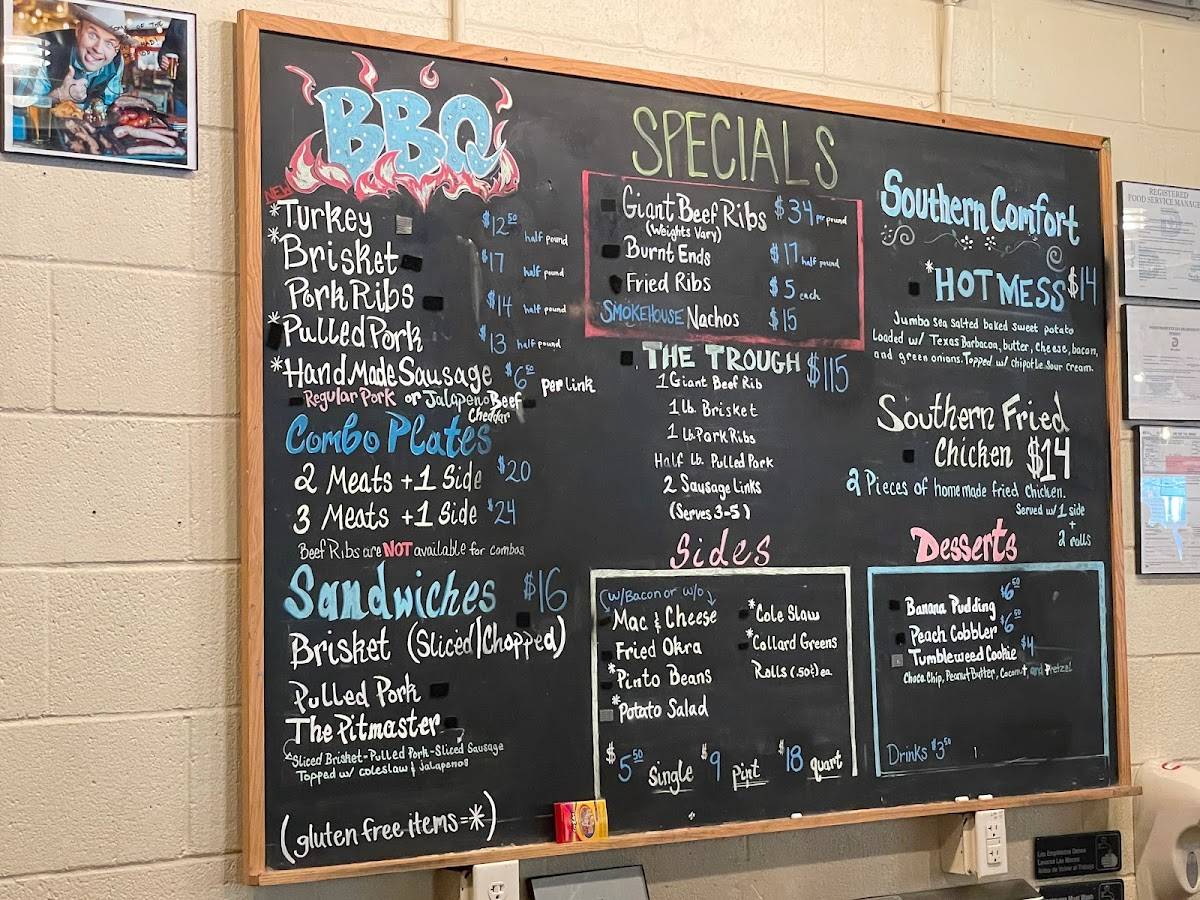 BBQ
NEW
*Turkey $12.50 half pound
*Brisket $17 half pound
Pork Ribs $14 half pound
*Pulled Pork $13 half pound
*Hand Made Sausage $6.50 per link
Regular Pork or Jalapeno Beef
Cheddar
Combo Plates
2 Meats + 1 Side $20
3 Meats + 1 Side $24
Beef Ribs are NOT available for combos
Sandwiches $16
Brisket (Sliced/Chopped)
Pulled Pork
The Pitmaster
Sliced Brisket-Pulled Pork-Sliced Sausage
Topped w/ coleslaw & Jalapenos
(gluten free items=*)
SPECIALS
Giant Beef Ribs $34 per pound
(Weights Vary)
Burnt Ends $17 half pound
Fried Ribs $5 each
SMOKEHOUSE Nachos $15
THE TROUGH $115
1 Giant Beef Rib
1 lb. Brisket
1 Lb. Pork Ribs
Half Lb. Pulled Pork
2 Sausage Links
(Serves 3-5)
Sides
(w/Bacon or w/o)
Mac & Cheese
Fried Okra
*Pinto Beans
*Potato Salad
*Cole Slaw
*Collard Greens
Rolls (.50¢) ea
$5.50 Single $9 pint $18 quart
Southern Comfort
*HOT MESS $14
Jumbo sea salted baked sweet potato
Loaded w/ Texas Barbacoa, butter, cheese, bacon,
and green onions. Topped w/ chipotle sour cream.
Southern Fried
Chicken $14
2 Pieces of homemade fried chicken.
Served w/ 1 side
+
2 rolls
Desserts
Banana Pudding $6.50
Peach Cobbler $6.50
Tumbleweed Cookie $4
Choco Chip, Peanut Butter, Coconut and Pretzel
Drinks $3.50
REGISTERED
FOOD SERVICE MANAGE